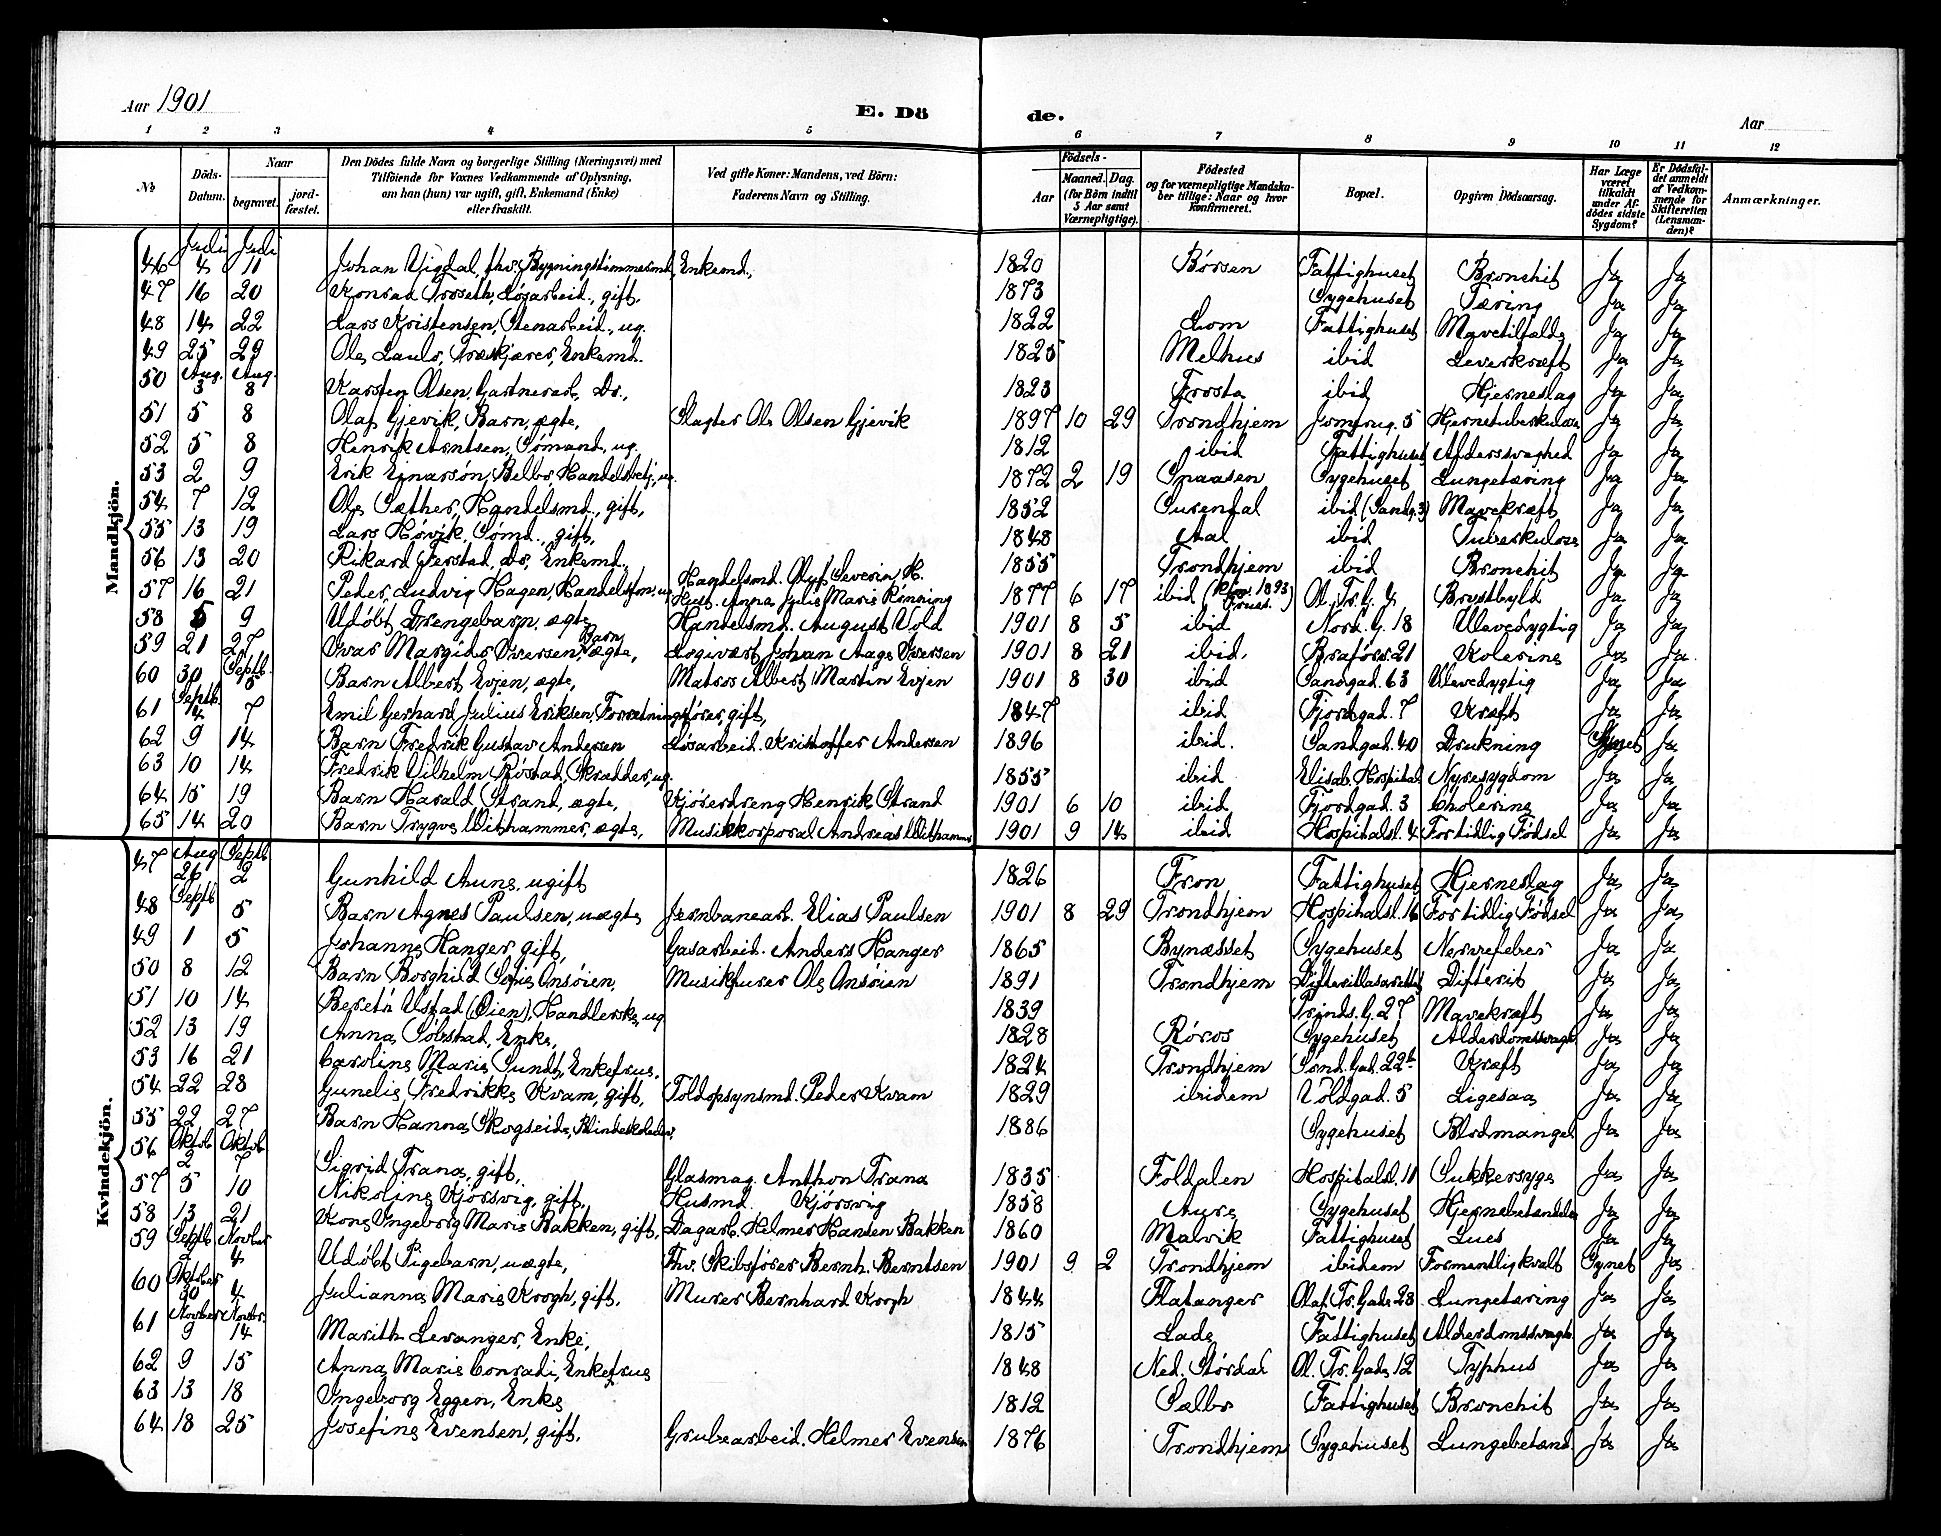 Aar 1901 E. Dö de. Aar
1 2 3 4 5 6 7 8 9 10 11 12
No Döds-Datum. Naar begravet. jordfæstet. Den Dödes fulde Navn og borgerlige Stilling (Næringsvei) med Tilföiende for Voxnes Vedkommende af Oplysning, om han (hun) var ugift, gift, Enkemand (Enke) eller fraskilt. Ved gifte Koner: Mandens, ved Börn: Faderens Navn og Stilling. Födsels- Aar Maaned. Dag. (for Börn indtil 5 Aar samt Værnepligtige). Födested og for værnepligtige Mandskaber tillige: Naar og hvor konfirmeret. Bopæl. Opgiven Dödsaarsag. Har Læge været tilkaldt under Afdödes sidste Sygdom? Er Dödsfaldet anmeldt af Vedkommende for Skifteretten (Lensmanden)? Anmærkninger.
Mandkjön.
Juli Juli
46 4 11 Johan Vigdal, fhv. Bygningstömmermd, Enkemd., 1820 Börsen Fattighuset Bronchit Ja Ja
47 16 20 Konrad Troseth, Lösarbeid., gift. 1873 Sygehuset Tæring Ja Ja
48 14 22 Lars Kristensen, Stenarbeid., ug. 1822 Lom Fattighuset Mavetilfælde Ja Ja
49 25 29 Ole Lauls, Træskjærer, Enkemd. 1825 Melhus ibid Leverkræft Ja Ja
50 Aug. 3 Aug. 8 Karsten Olsen, Gartnerarb., Do., 1823 Frosta ibid Hjerneslag Ja Ja
51 5 8 Olaf Gjevik, Barn, ægte, Slagter Ole Olsen Gjevik 1897 10 29 Trondhjem Jomfrug. 5 Hjernetuberkulose Ja Ja
52 5 8 Henrik Arntsen, Sömand, ug. 1812 ibid Fattighuset Alderssvaghed Ja Ja
53 2 9 Erik Einarsön, Belbo, Handelsbetj., ug. 1872 2 19 Snaasen Sygehuset Lungetæring Ja Ja
54 7 12 Ole Sæther, Handelsmd., gift, 1852 Surendal ibid (Sandg. 3) Mavekræft Ja Ja
55 13 19 Lars Hövik, Sömd., gift, 1848 Aal ibid Tuberkulose Ja Ja
56 13 20 Rikard Ferstad, do, Enkemd., 1855 Trondhjem ibid Bronchit Ja Ja
57 16 21 Peder Ludvig Hagen, Handelsfm., ug. Handelsmd. Oluf Severin H. Hust. Anna Julie Marie Rönning 1877 6 17 ibid (Konf. 1893 Frues.) Ol. Tr. G. 4 Brystbyld Ja Ja
58 5 9 Udöbt Drengebarn, ægte Handelsmd. August Vold 1901 8 5 ibid Nord. G. 18 Ulevedygtig Ja Ja
59 21 27 Ivar Margido Iversen, Barn ægte, Logivært Johan Aage Iversen 1901 8 21 ibid. Braförs. 21 Kolerine Ja Ja
60 30 Septb. 5 Barn Albert Evjen, ægte, Matros Albert Martin Evjen 1901 8 30 ibid Sandgad. 63 Ulevedygtig Ja Ja
61 Septb. 4 7 Emil Gerhard Julius Eriksen, Forretningsförer, gift, 1847 ibid Fjordgad. 7 Kræft Ja Ja
62 9 14 Barn Fredrik Gustav Andersen Lösarbeid. Kristoffer Andersen 1896 ibid. Sandgad. 40 Drukning Synet Ja
63 10 14 Fredrik Vilhelm Röstad, Skrædder, ug. 1855 ibid Elisab. Hospital Nyresygdom Ja Ja
64 15 19 Barn Harald Strand, ægte, Kjöredreng Henrik Strand 1901 6 10 ibid Fjordgad. 3 Cholerine Ja Ja
65 14 20 Barn Trygve Withammer, ægte, Musikkorporal Andreas Withammer 1901 9 14 ibid Hospitalsl. 4 For tidlig Födsel Ja Ja
Kvindekjön.
47 Aug 26 Septb 2 Gunhild Aune, ugift 1826 Fron Fattighuset Hjerneslag Ja Ja
48 Septb. 1 5 Barn Agnes Paulsen, uægte Jernbanearb. Elias Paulsen 1901 8 29 Trondhjem Hospitalsl. 16 For tidlig Födsel Ja Ja
49 1 5 Johanne Hanger, gift, Gasarbeid. Anders Hanger 1865 Bynæsset Sygehuset Nervefeber Ja Ja
50 8 12 Barn Borghild Sofie Onsöien, Musikfurer Ole Onsöien 1891 Trondhjem Difterilasarettet Difterit Ja Ja
51 10 14 Bereth Ustad (Öien), Handlerske, ug. 1839 Prinds. G. 27 Mavekræft Ja Ja
52 13 19 Anna Solstad, Enke, 1828 Röros Sygehuset Alderdomssvagh. Ja Ja
53 16 21 Caroline Marie Sundt, Enkefrue. 1824 Trondhjem Sönd. Gad. 22b Kræft Ja Ja
54 22 28 Gunelie Fredrikke Kvam, gift, Toldopsynsmd. Peder Kvam 1829 ibidem Voldgad. 5 Ligesaa Ja Ja
55 22 27 Barn Hanna Skogseide, Blindeskolen, 1886 Sygehuset Blodmangel Ja Ja
56 Oktob 2 Oktob 7 Sigrid Trana, gift, Glasmag. Anthon Trana 1835 Foldalen Hospitalsl. 11 Sukkersyge Ja Ja
57 5 10 Nikoline Kjörsvig, gift, Husmd. Kjörsvig 1858 Aure Sygehuset Hjernebetændelse Ja Ja
58 13 21 Kone Ingeborg Marie Bakken, gift, Dagarb. Helmer Hansen Bakken 1860 Malvik Fattighuset Lues Ja Ja
59 Septb 2 Novber 4 Udöbt Pigebarn, uægte, Fhv. Skibsförer Bernh. Berntsen 1901 9 2 Trondhjem ibidem Formentlig kvalt Synet Ja
60 Oktober 30 4 Julianna Marie Krogh, gift. Murer Bernhard Krogh 1844 Flatanger Olaf Tr. Gade 28 Lungetæring Ja Ja
61 Novber 9 Novbr. 14 Marith Levanger, Enke, 1815 Lade Fattighuset Alderdomssvagh. Ja Ja
62 9 15 Anna Marie Conradi, Enkefrue 1848 Ned. Stördal Ol. Tr. Gade 12 Typhus Ja Ja
63 13 18 Ingeborg Eggen, Enke 1812 Sælbo Fattighuset Bronchit Ja Ja
64 18 25 Josefine Evensen, gift. Grubearbeid. Helmer Evensen 1876 Trondhjem Sygehuset Lungebetænd. Ja Ja